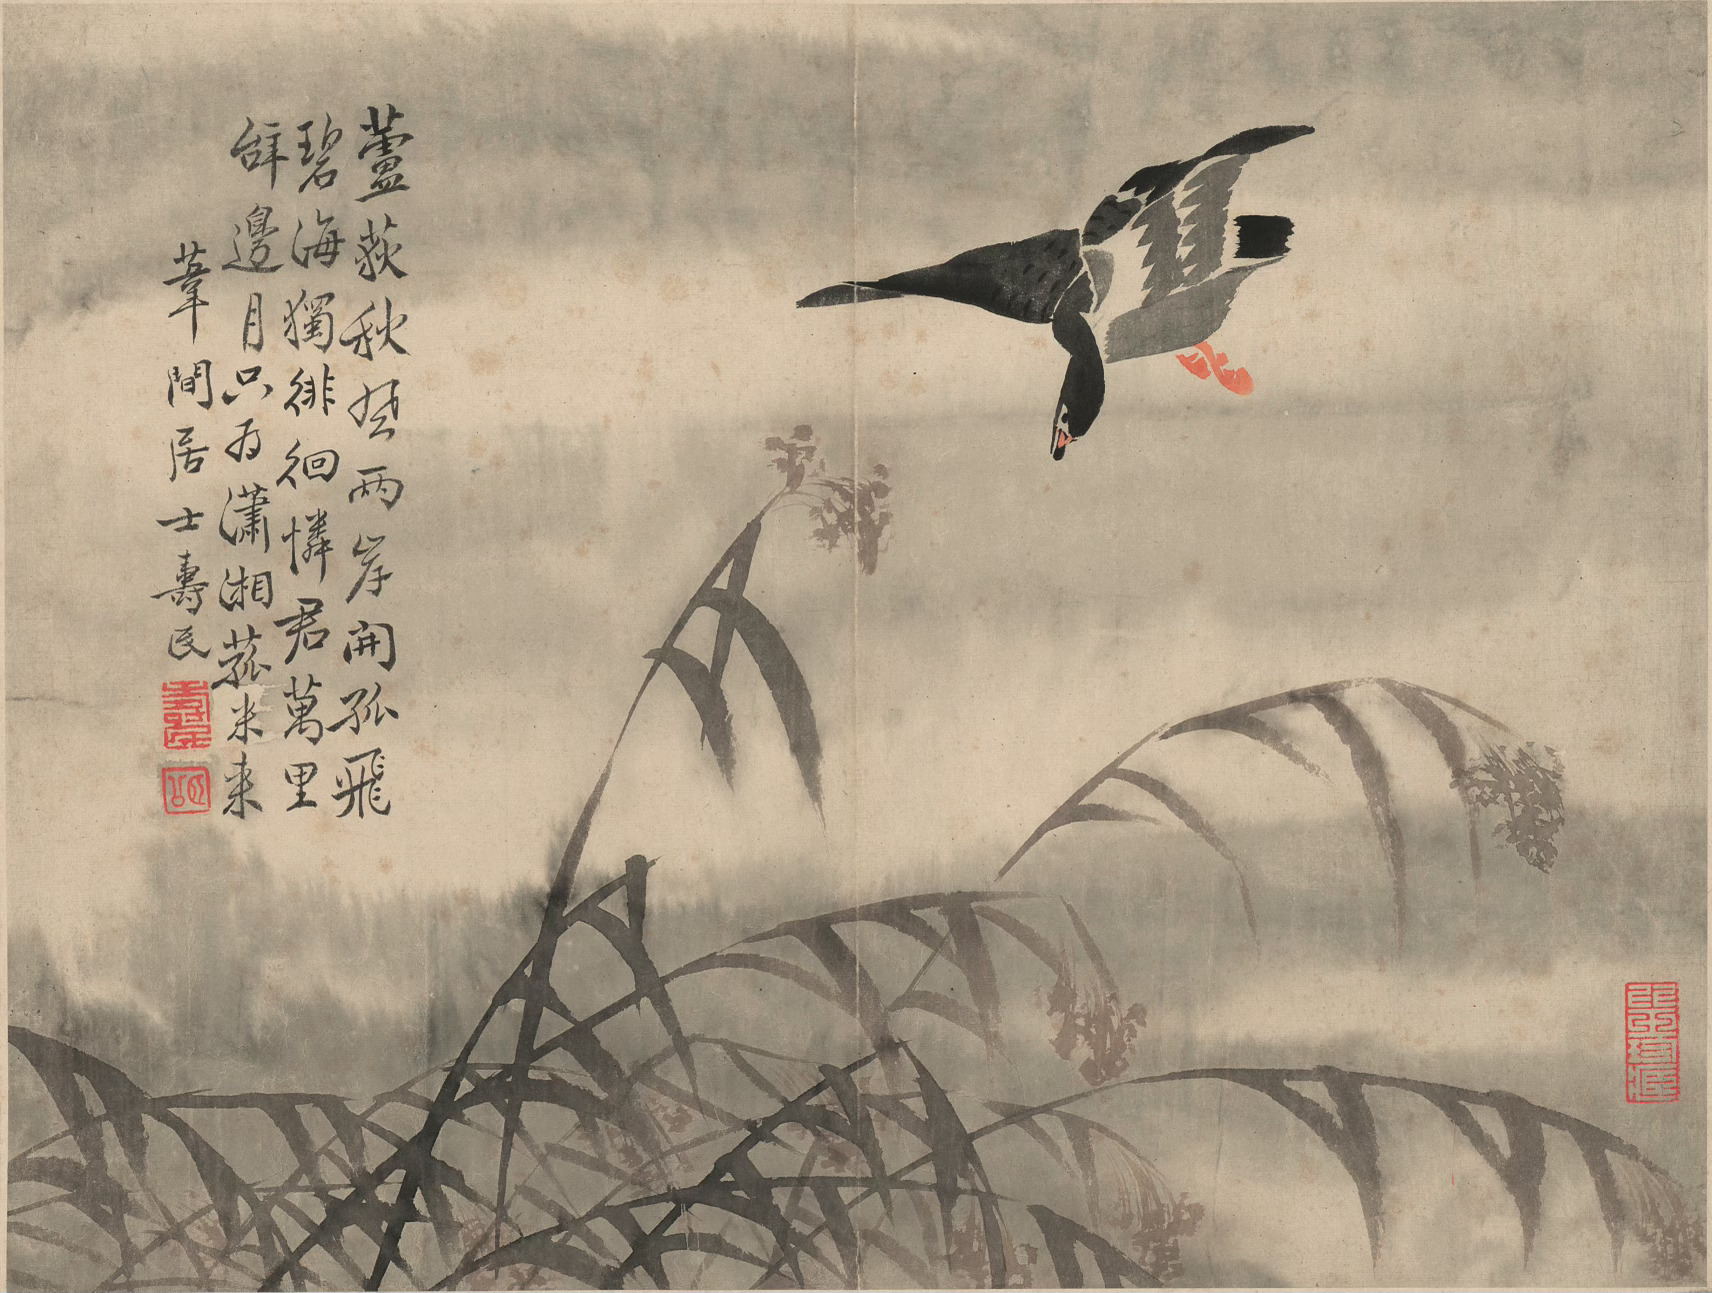 蘆荻秋風兩岸開孤飛
碧海獨徘徊憐君萬里
辝邊月只為瀟湘菰米来
葦間居士壽民